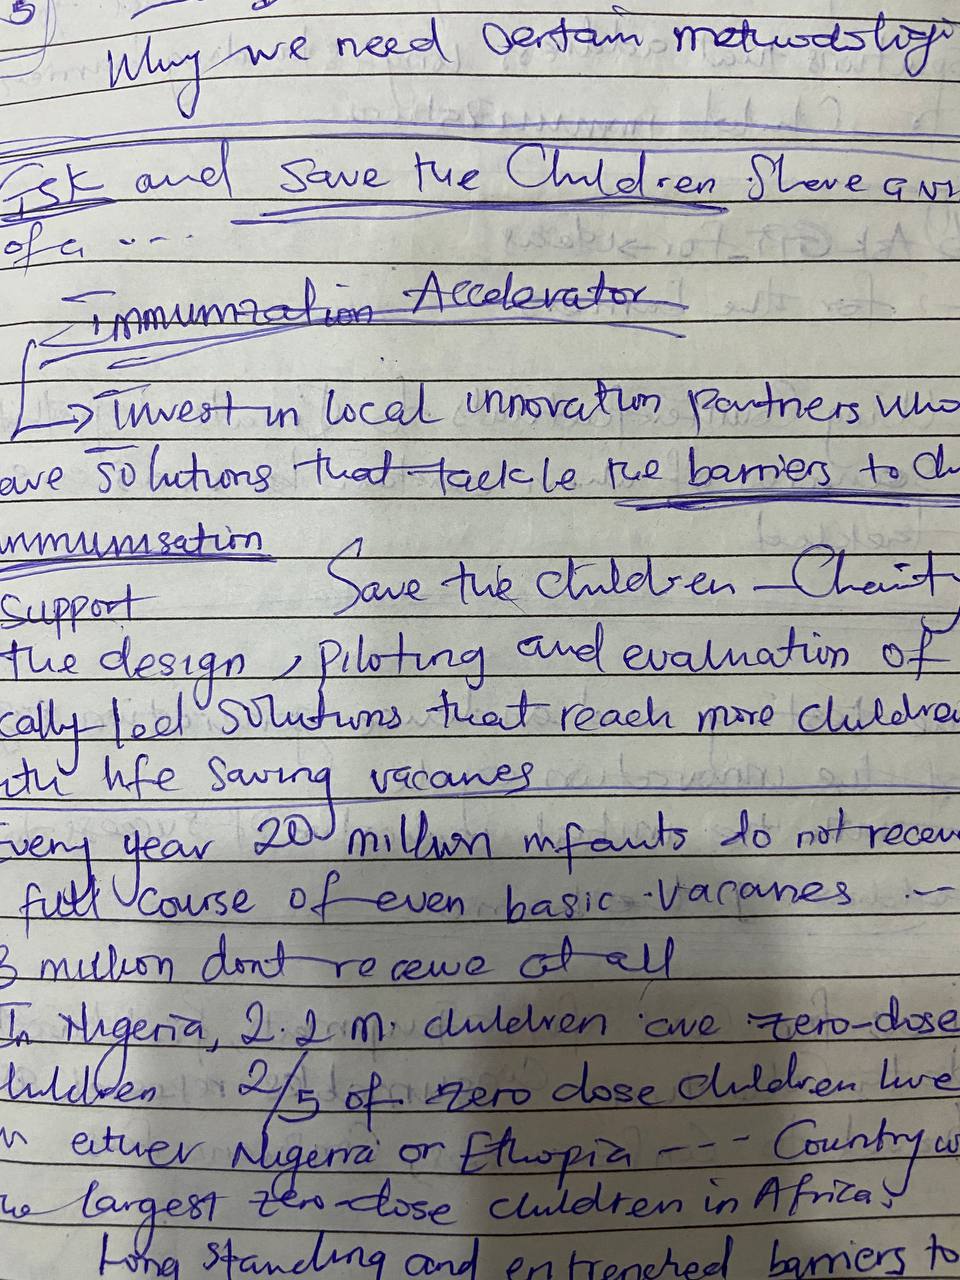 5)
Why we need certain methodologi
GSK and Save the Children Share a
of a ...
Immunization Accelerator
→ Invest in local innovation partners who
ave solutions that tackle the barriers to ch
mmunisation
Save the children - Charity
Support
the design, piloting and evaluation of
cally led solutions that reach more childre
ith life saving vacanes
Every year 20 million infants do not receiv
full course of even basic vacanes --
3 million dont receive at all
In Nigeria, 2.2 m. children are zero-dose
children 2/5 of zero dose children live
in either Nigeria or Ethopia --- Country w
he largest zero-dose children in Africa,
Long standing and entrenched barriers to